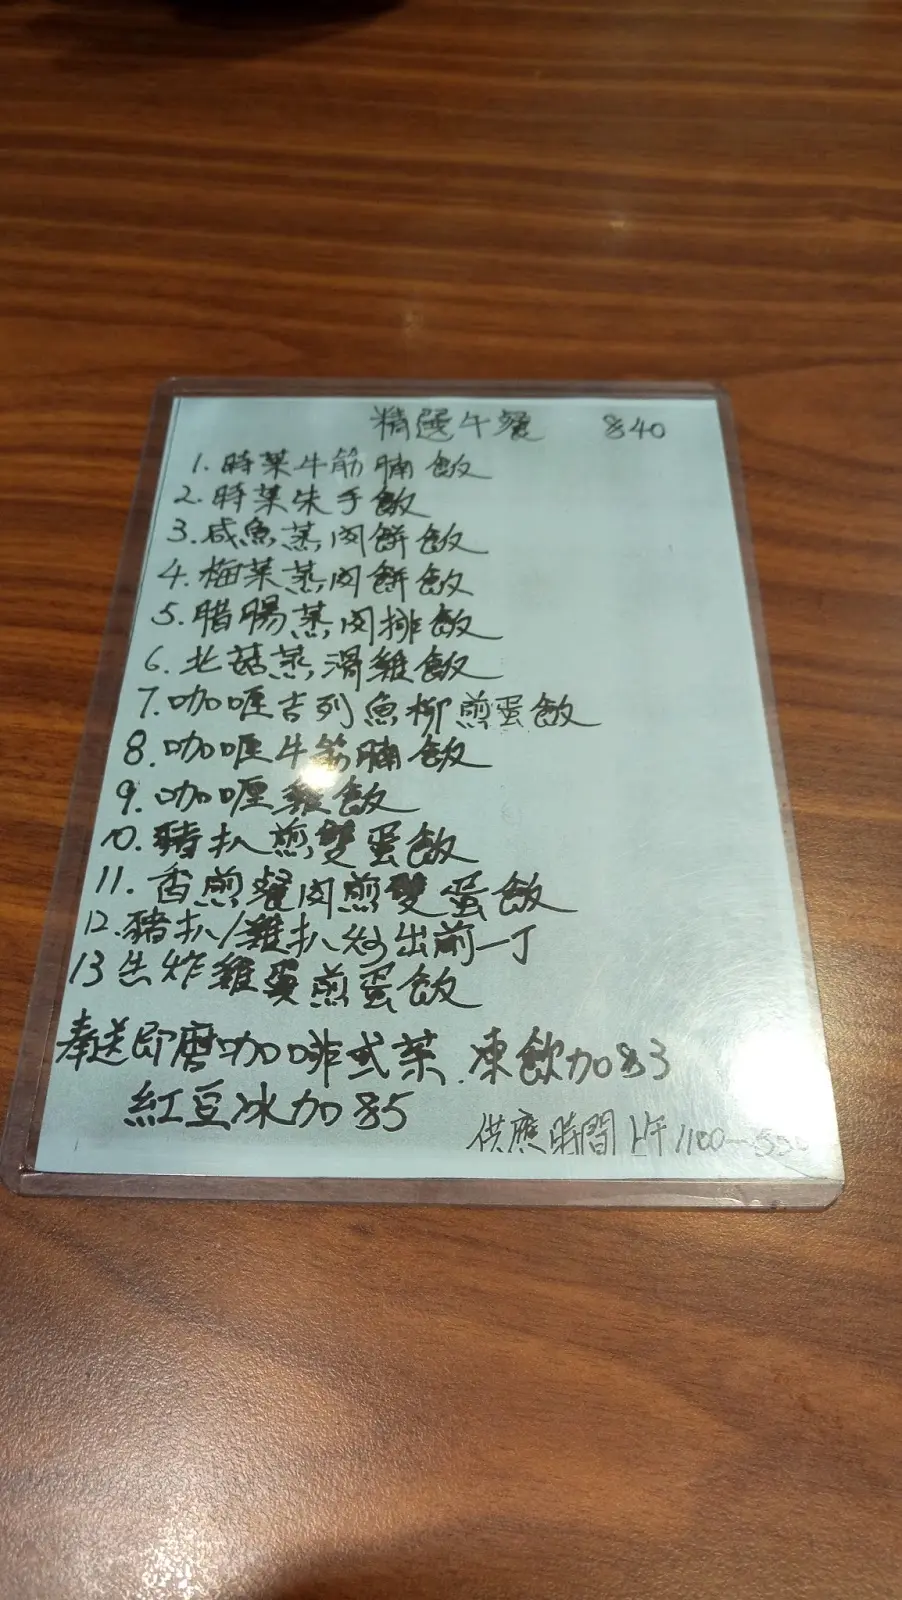 精選午餐 $40
1. 時菜牛筋腩飯
2. 時菜朱手飯
3. 咸魚蒸肉餅飯
4. 梅菜蒸肉餅飯
5. 腊腸蒸肉排飯
6. 北菇蒸滑雞飯
7. 咖喱吉列魚柳煎蛋飯
8. 咖喱牛筋腩飯
9. 咖喱雞飯
10. 豬扒煎雙蛋飯
11. 香煎餐肉煎雙蛋飯
12. 豬扒/雞扒炒出前一丁
13 生炸雞翼煎蛋飯
奉送即磨咖啡或茶.凍飲加$3
紅豆冰加$5
供應時間上午1100—